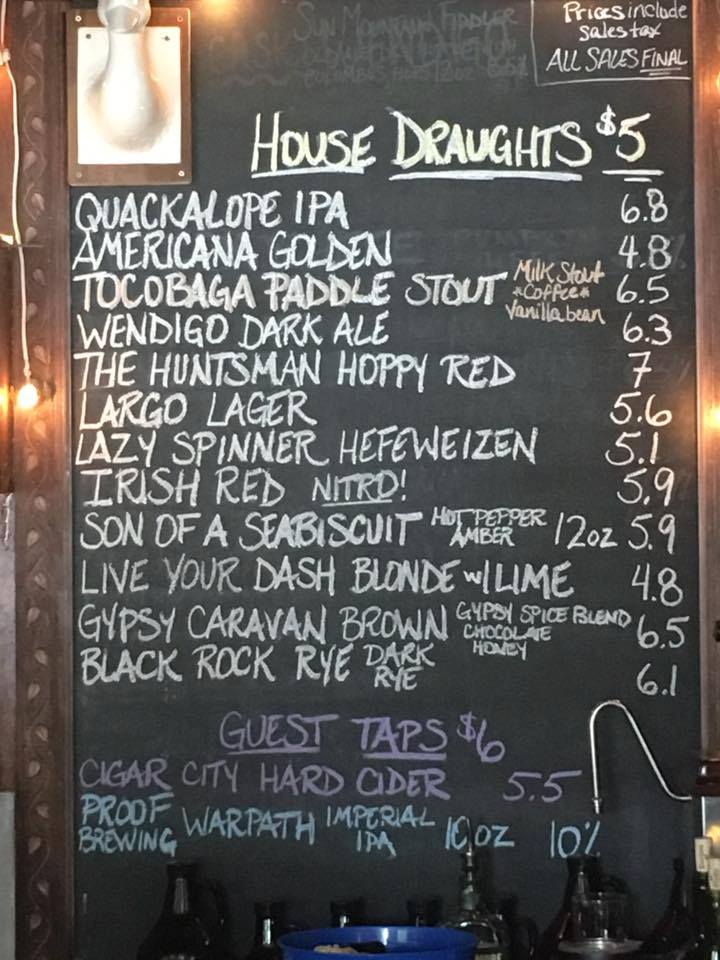 Prices include
sales tax
ALL SALES FINAL
HOUSE DRAUGHTS $5
QUACKALOPE IPA 6.8
AMERICANA GOLDEN 4.8
TOCOBAGA PADDLE STOUT Milk Stout *Coffee* Vanilla bean 6.5
WENDIGO DARK ALE 6.3
THE HUNTSMAN HOPPY RED 7
LARGO LAGER 5.6
LAZY SPINNER HEFEWEIZEN 5.1
IRISH RED NITRO! 5.9
SON OF A SEABISCUIT HOT PEPPER AMBER 12oz 5.9
LIVE YOUR DASH BLONDE w/ LIME 4.8
GYPSY CARAVAN BROWN GYPSY SPICE BLEND CHOCOLATE HONEY 6.5
BLACK ROCK RYE DARK RYE 6.1
GUEST TAPS $6
CIGAR CITY HARD CIDER 5.5
PROOF BREWING WARPATH IMPERIAL IPA 10oz 10%